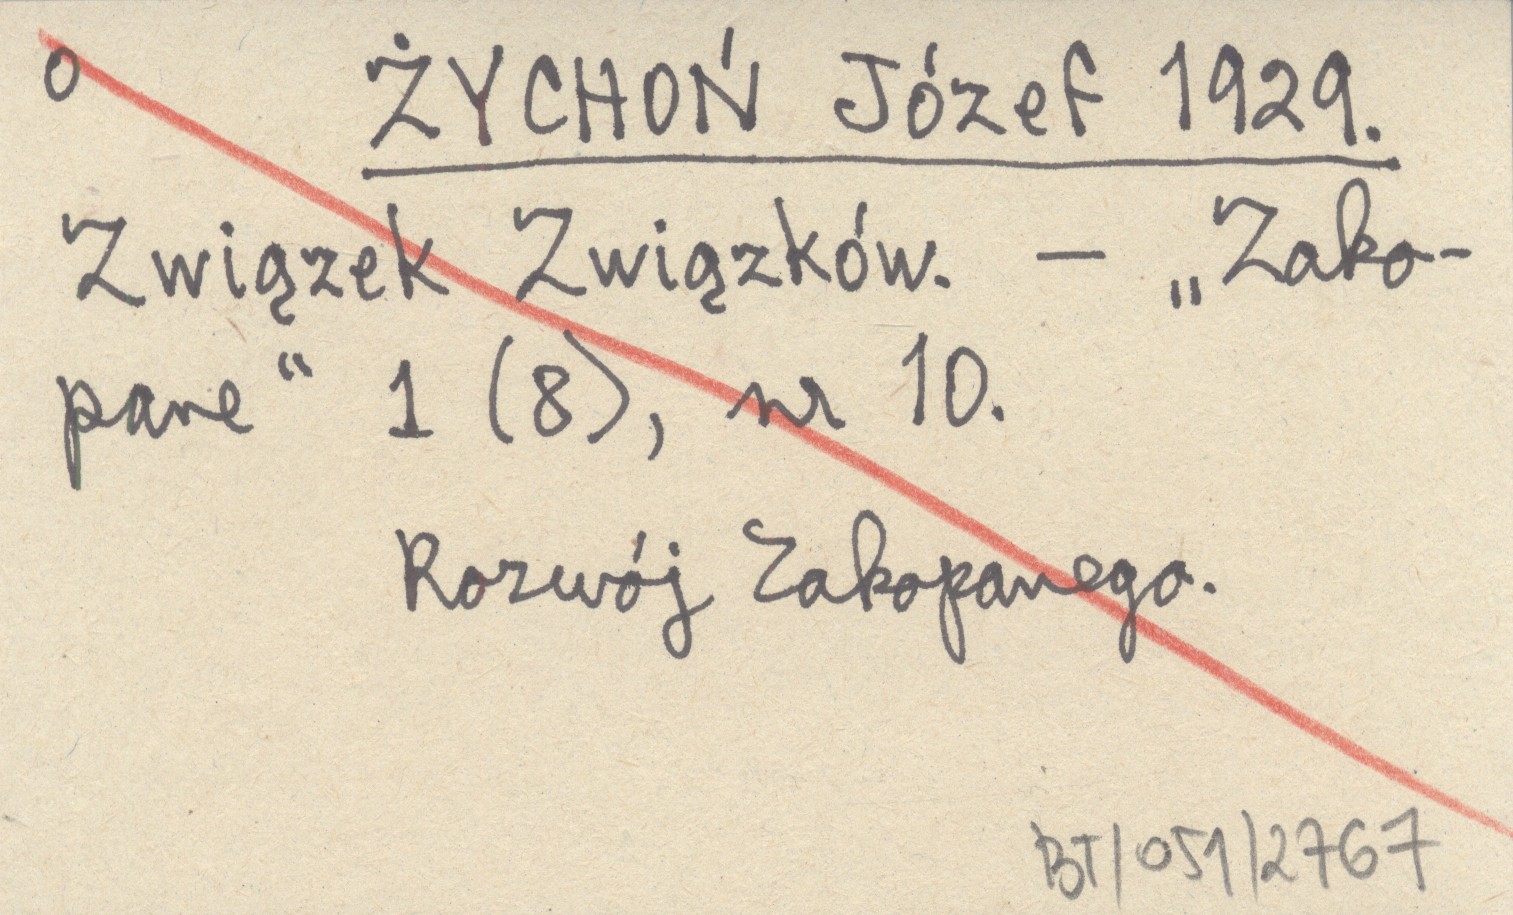 o ŻYCHOŃ Józef 1929.
Związek Związków. – „Zako-
pane“ 1 (8), nr 10.
Rozwój Zakopanego.
BT/051/2767